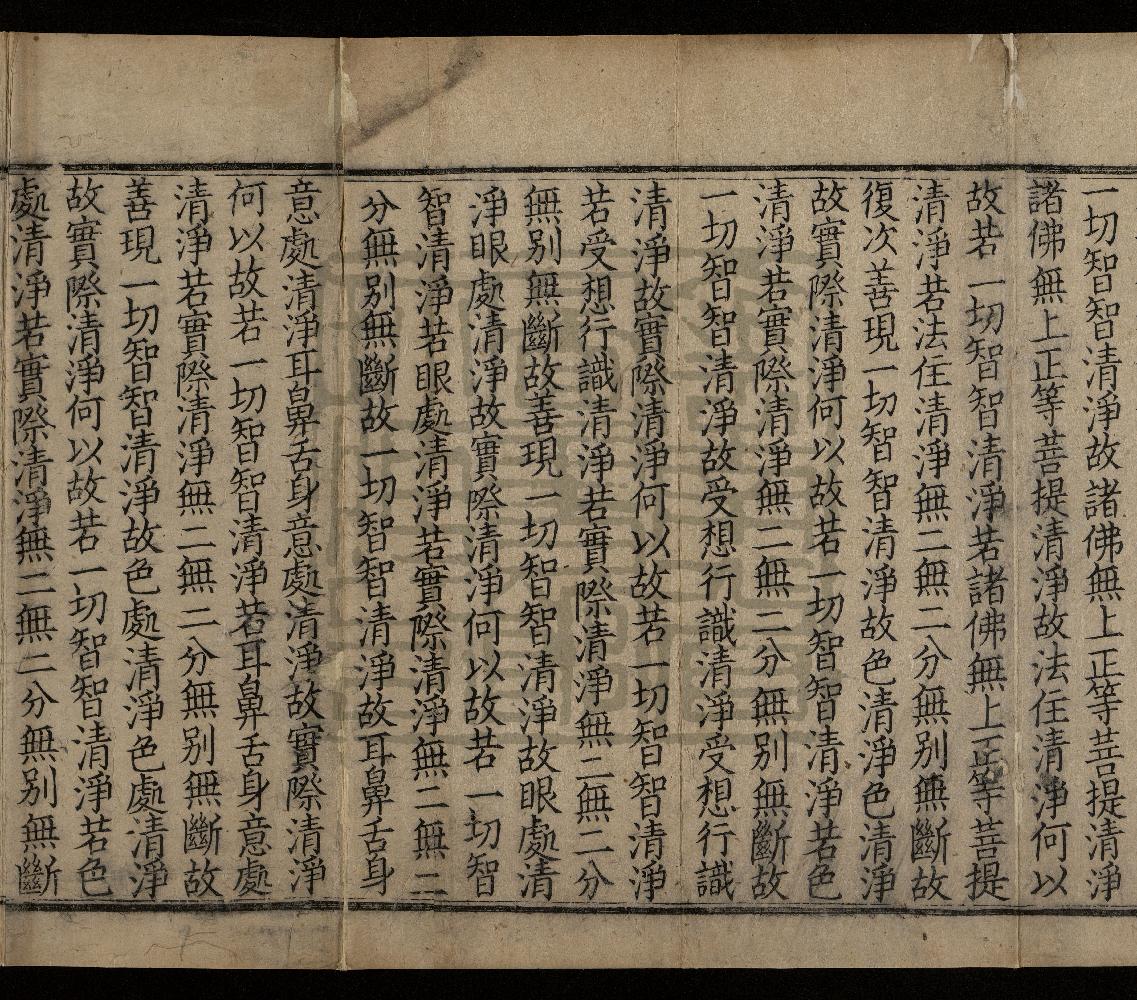 一切智智清淨故諸佛無上正等菩提清淨
諸佛無上正等菩提清淨故法住清淨何以
故若一切智智清淨若諸佛無上正等菩提
清淨若法住清淨無二無二分無別無斷故
復次善現一切智智清淨故色清淨色清淨
故實際清淨何以故若一切智智清淨若色
清淨若實際清淨無二無二分無別無斷故
一切智智清淨故受想行識清淨受想行識
清淨故實際清淨何以故若一切智智清淨
若受想行識清淨若實際清淨無二無二分
無別無斷故善現一切智智清淨故眼處清
淨眼處清淨故實際清淨何以故若一切智
智清淨若眼處清淨若實際清淨無二無二
分無別無斷故一切智智清淨故耳鼻舌身
意處清淨耳鼻舌身意處清淨故實際清淨
何以故若一切智智清淨若耳鼻舌身意處
清淨若實際清淨無二無二分無別無斷故
善現一切智智清淨故色處清淨色處清淨
故實際清淨何以故若一切智智清淨若色
處清淨若實際清淨無二無二分無別無斷